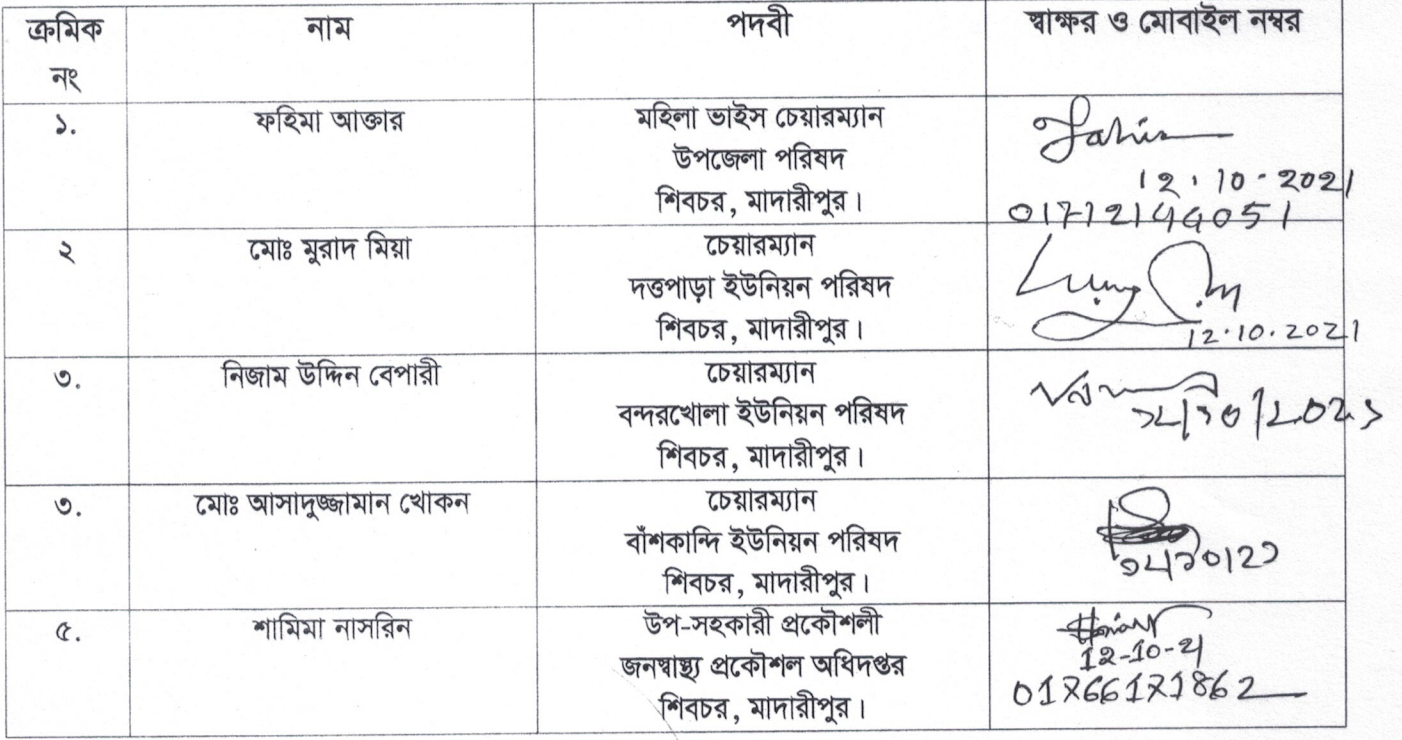 ক্রমিক নং নাম পদবী স্বাক্ষর ও মোবাইল নম্বর
১. ফহিমা আক্তার মহিলা ভাইস চেয়ারম্যান
উপজেলা পরিষদ
শিবচর, মাদারীপুর।
12.10.2021
২ মোঃ মুরাদ মিয়া চেয়ারম্যান
দত্তপাড়া ইউনিয়ন পরিষদ
শিবচর, মাদারীপুর।
12.10.2021
৩. নিজাম উদ্দিন বেপারী চেয়ারম্যান
বন্দরখোলা ইউনিয়ন পরিষদ
শিবচর, মাদারীপুর।
৩. মোঃ আসাদুজ্জামান খোকন চেয়ারম্যান
বাঁশকান্দি ইউনিয়ন পরিষদ
শিবচর, মাদারীপুর।
৫. শামিমা নাসরিন উপ-সহকারী প্রকৌশলী
জনস্বাস্থ্য প্রকৌশল অধিদপ্তর
শিবচর, মাদারীপুর।
12-10-21